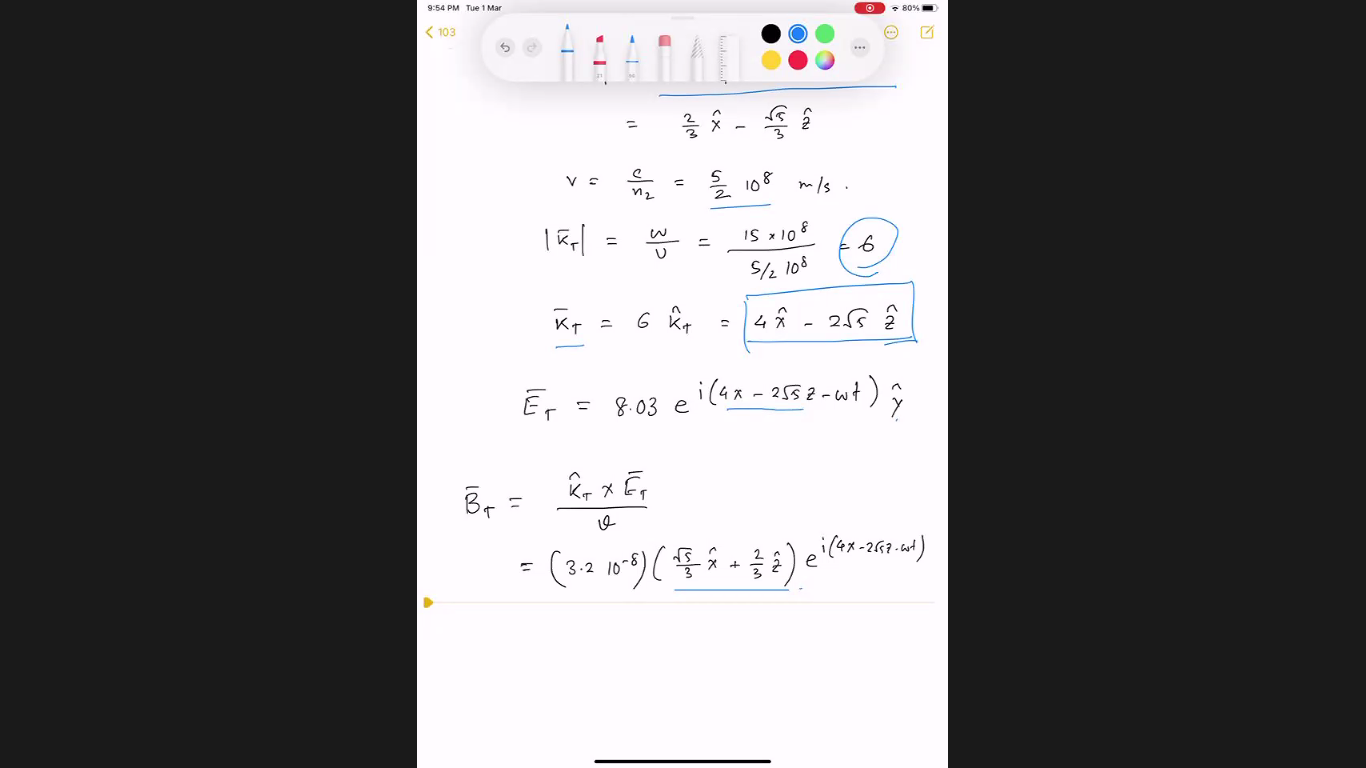 9:54 PM Tue 1 Mar
80%
103
= 2/3 x̂ - √5/3 ẑ
v = c/n₂ = 5/2 10⁸ m/s.
|K̄_T| = ω/v = 15 × 10⁸ / 5/2 10⁸ = 6
K̄_T = 6 K̂_T = 4 x̂ - 2√5 ẑ
Ē_T = 8.03 e^i(4x - 2√5 z - ωt) ŷ
B̄_T = K̂_T × Ē_T / v
= (3.2 10⁻⁸) (√5/3 x̂ + 2/3 ẑ) e^i(4x - 2√5z - ωt)